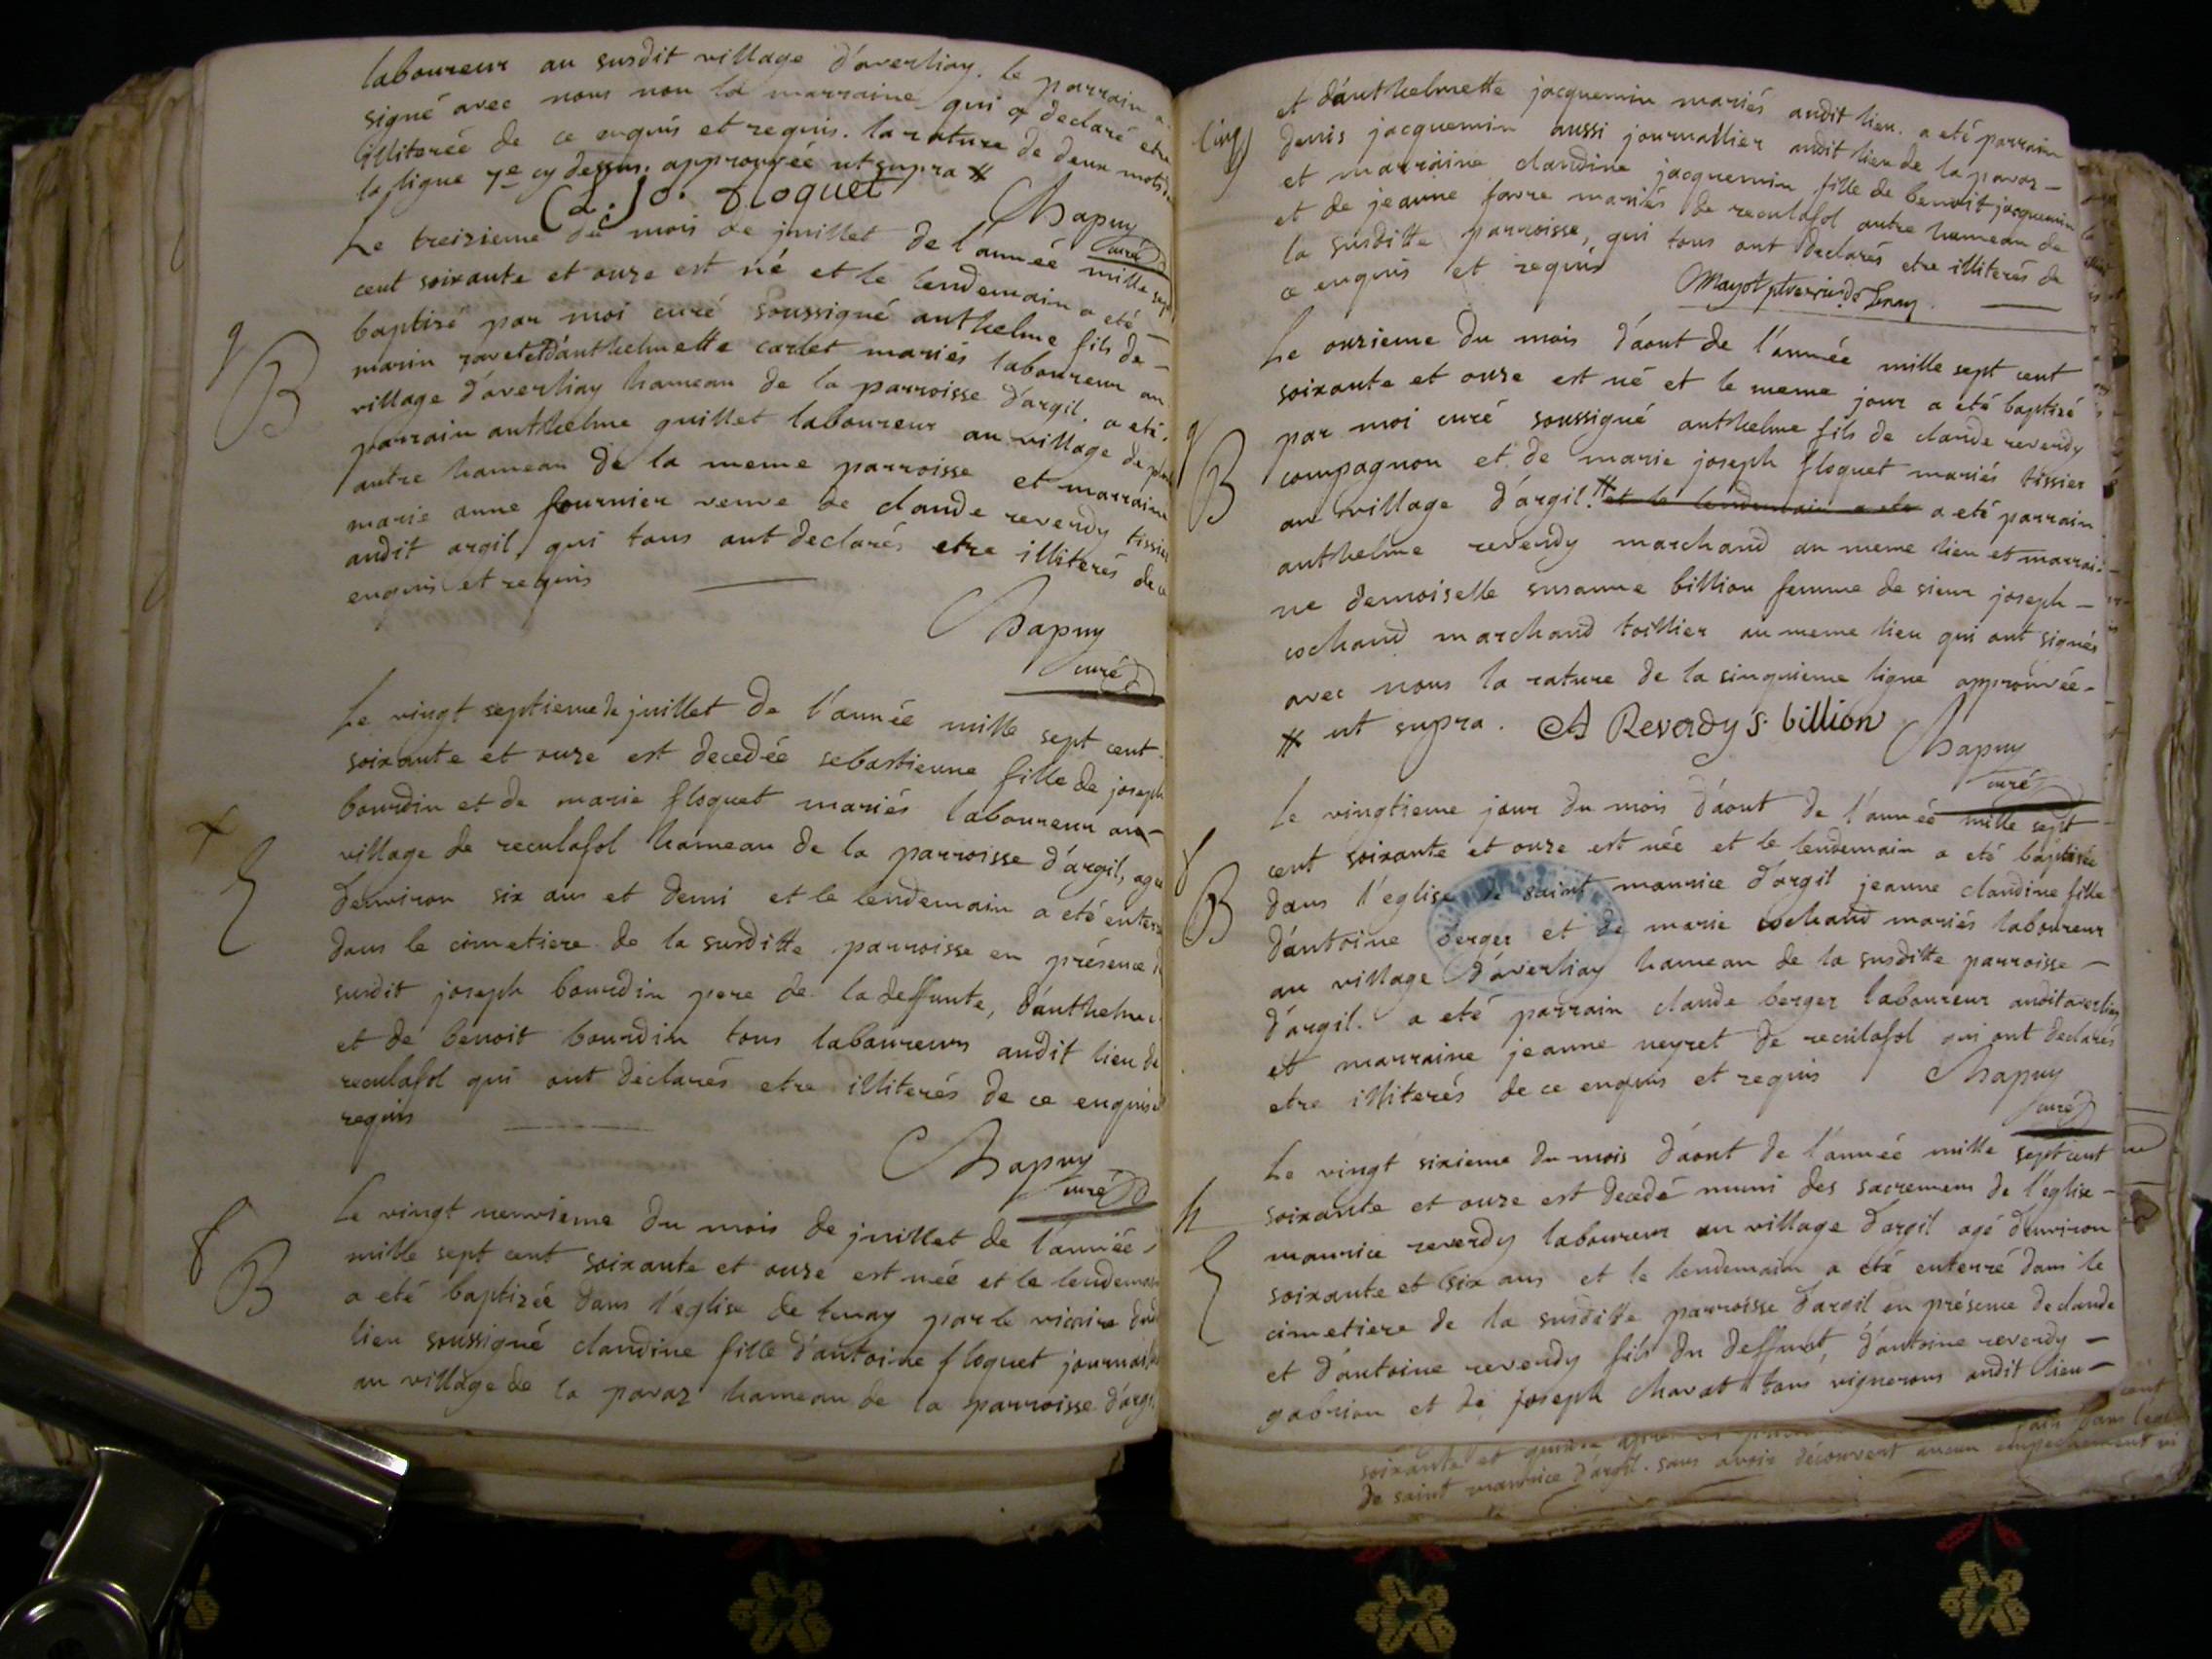 laboureur au susdit village d'averliay. le parrain a
signé avec nous non la marraine qui a declaré etre
illiterée de ce enquis et requis. la rature de deux mots
la ligne 7e cy dessus. approuvée ut supra
jo. floquet
Chapuy
curé
Le treizieme du mois de juillet de l'année mille sept
cent soixante et onze est né et le lendemain a eté
baptizé par moi curé soussigné anthelme fils de
marin ravet et d'anthelmette carlet mariés laboureur au
village d'averliay hameau de la parroisse d'argil. a eté
parrain anthelme guillet laboureur au village de
autre hameau de la meme parroisse et marraine
marie anne fournier veuve de claude reverdy tissier
audit argil, qui tous ont declarés etre illiterés de ce
enquis et requis
B
Chapuy
curé
Le vingt septieme de juillet de l'année mille sept cent
soixante et onze est decedée sebastienne fille de joseph
bourdin et de marie floquet mariés laboureur au
village de reculafol hameau de la parroisse d'argil, agée
d'environ six ans et demi et le lendemain a eté enterrée
dans le cimetiere de la susditte parroisse en présence du
susdit joseph bourdin pere de la deffunte, d'anthelme
et de benoit bourdin tous laboureurs audit lieu de
reculafol qui ont déclarés etre illiterés de ce enquis et
requis
Chapuy
curé
Le vingt neuvieme du mois de juillet de l'année
mille sept cent soixante et onze est née et le lendemain
a eté baptizée dans l'eglise de tenay par le vicaire dudit
lieu soussigné claudine fille d'antoine floquet journalier
au village de la pavaz hameau de la parroisse d'argil
B
et d'anthelmette jacquemin mariés audit lieu. a eté parrain
denis jacquemin aussi journallier audit lieu de la pavaz
et marraine claudine jacquemin fille de benoit jacquemin
et de jeanne favre mariés de reculafol autre hameau de
la susditte parroisse, qui tous ont declarés etre illiterés de
ce enquis et requis
Mayot ptre vic. de Tenay.
Le onzieme du mois d'aout de l'année mille sept cent
soixante et onze est né et le meme jour a eté baptizé
par moi curé soussigné anthelme fils de claude reverdy
compagnon et de marie joseph floquet mariés tissier
au village d'argil. et le lendemain a eté a eté parrain
anthelme reverdy marchand au meme lieu et marrai-
ne demoiselle susanne billion femme de sieur joseph
cochand marchand toillier au meme lieu qui ont signés
avec nous la rature de la sinquieme ligne approuvée
ut supra. A Reverdy S. billion
B
Chapuy
curé
Le vingtieme jour du mois d'aout de l'année mille sept
cent soixante et onze est née et le lendemain a eté baptisée
dans l'eglise de saint maurice d'argil jeanne claudine fille
d'antoine berger et de marie cochand mariés laboureur
au village d'averliay hameau de la susditte parroisse
d'argil. a eté parrain claude berger laboureur audit averliay
et marraine jeanne neyret de reculafol qui ont declarés
etre illiterés de ce enquis et requis
B
Chapuy
curé
Le vingt sixieme du mois d'aout de l'année mille sept cent
soixante et onze est decedé muni des sacremens de l'eglise
maurice reverdy laboureur au village d'argil agé d'environ
soixante et six ans et le lendemain a eté enterré dans le
cimetiere de la susditte parroisse d'argil en présence de claude
et d'antoine reverdy fils du deffunt, d'antoine reverdy
gabrion et de joseph charat tous vignerons audit lieu
soixante et quinze
de saint maurice d'argil. sans avoir découvert aucun empechement ni